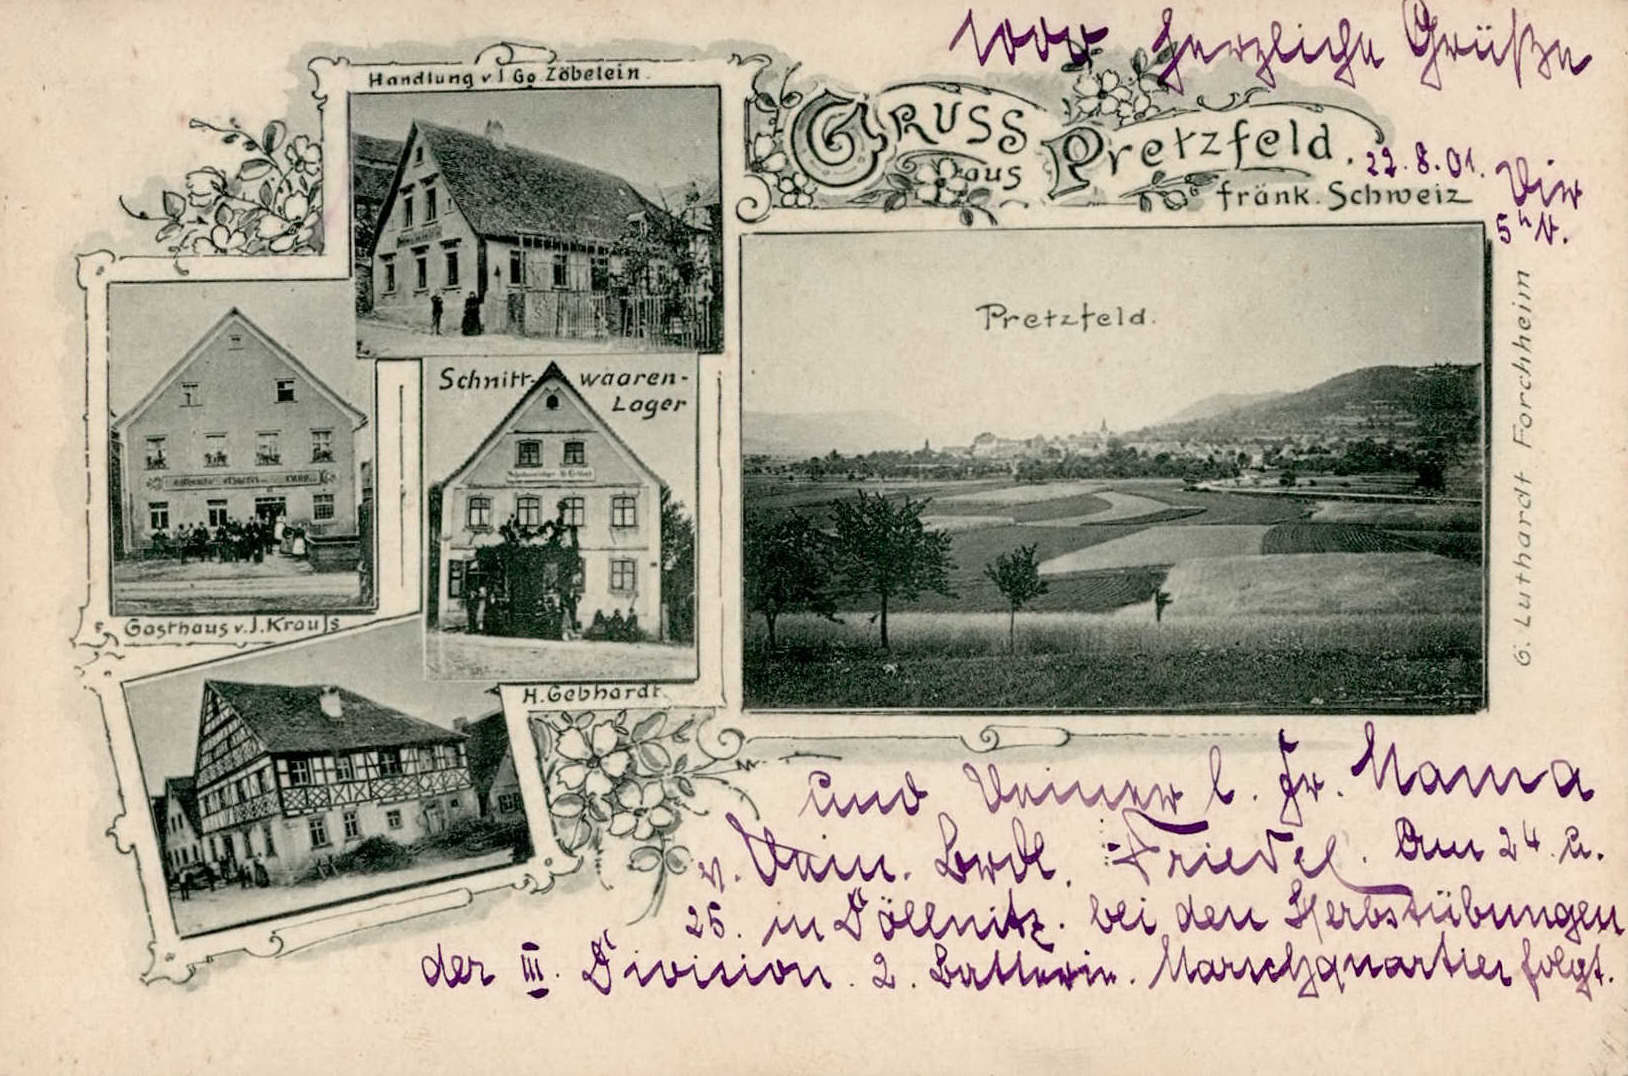 1000 herzliche Grüße
Handlung v. J. Gg. Zöbelein.
GRUSS
aus Pretzfeld.
fränk. Schweiz
22.8.01. Dir
5 h N.
Pretzfeld.
Schnitt- waaren-
Lager
Gasthaus v. J. Krauss
H. Gebhardt.
G. Luthardt Forchheim
und Deiner l. Fr. Mama
v. Dein. Brdl. Friedel. Am 24. u.
25. in Döllnitz. bei den Herbstübungen
der III. Division. 2. Batterie. Marschquartier folgt.